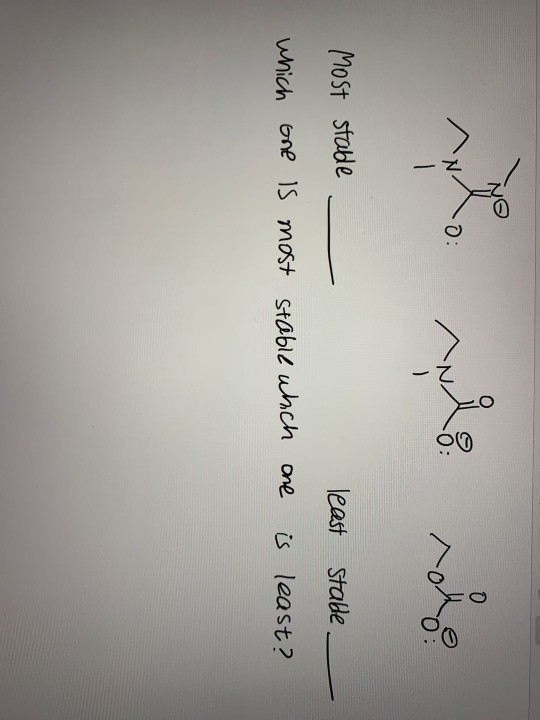 N N ⊖ O:
N O ⊖ O:
O O ⊖ O:
Most stable ____ least stable ____
which one is most stable which one is least?